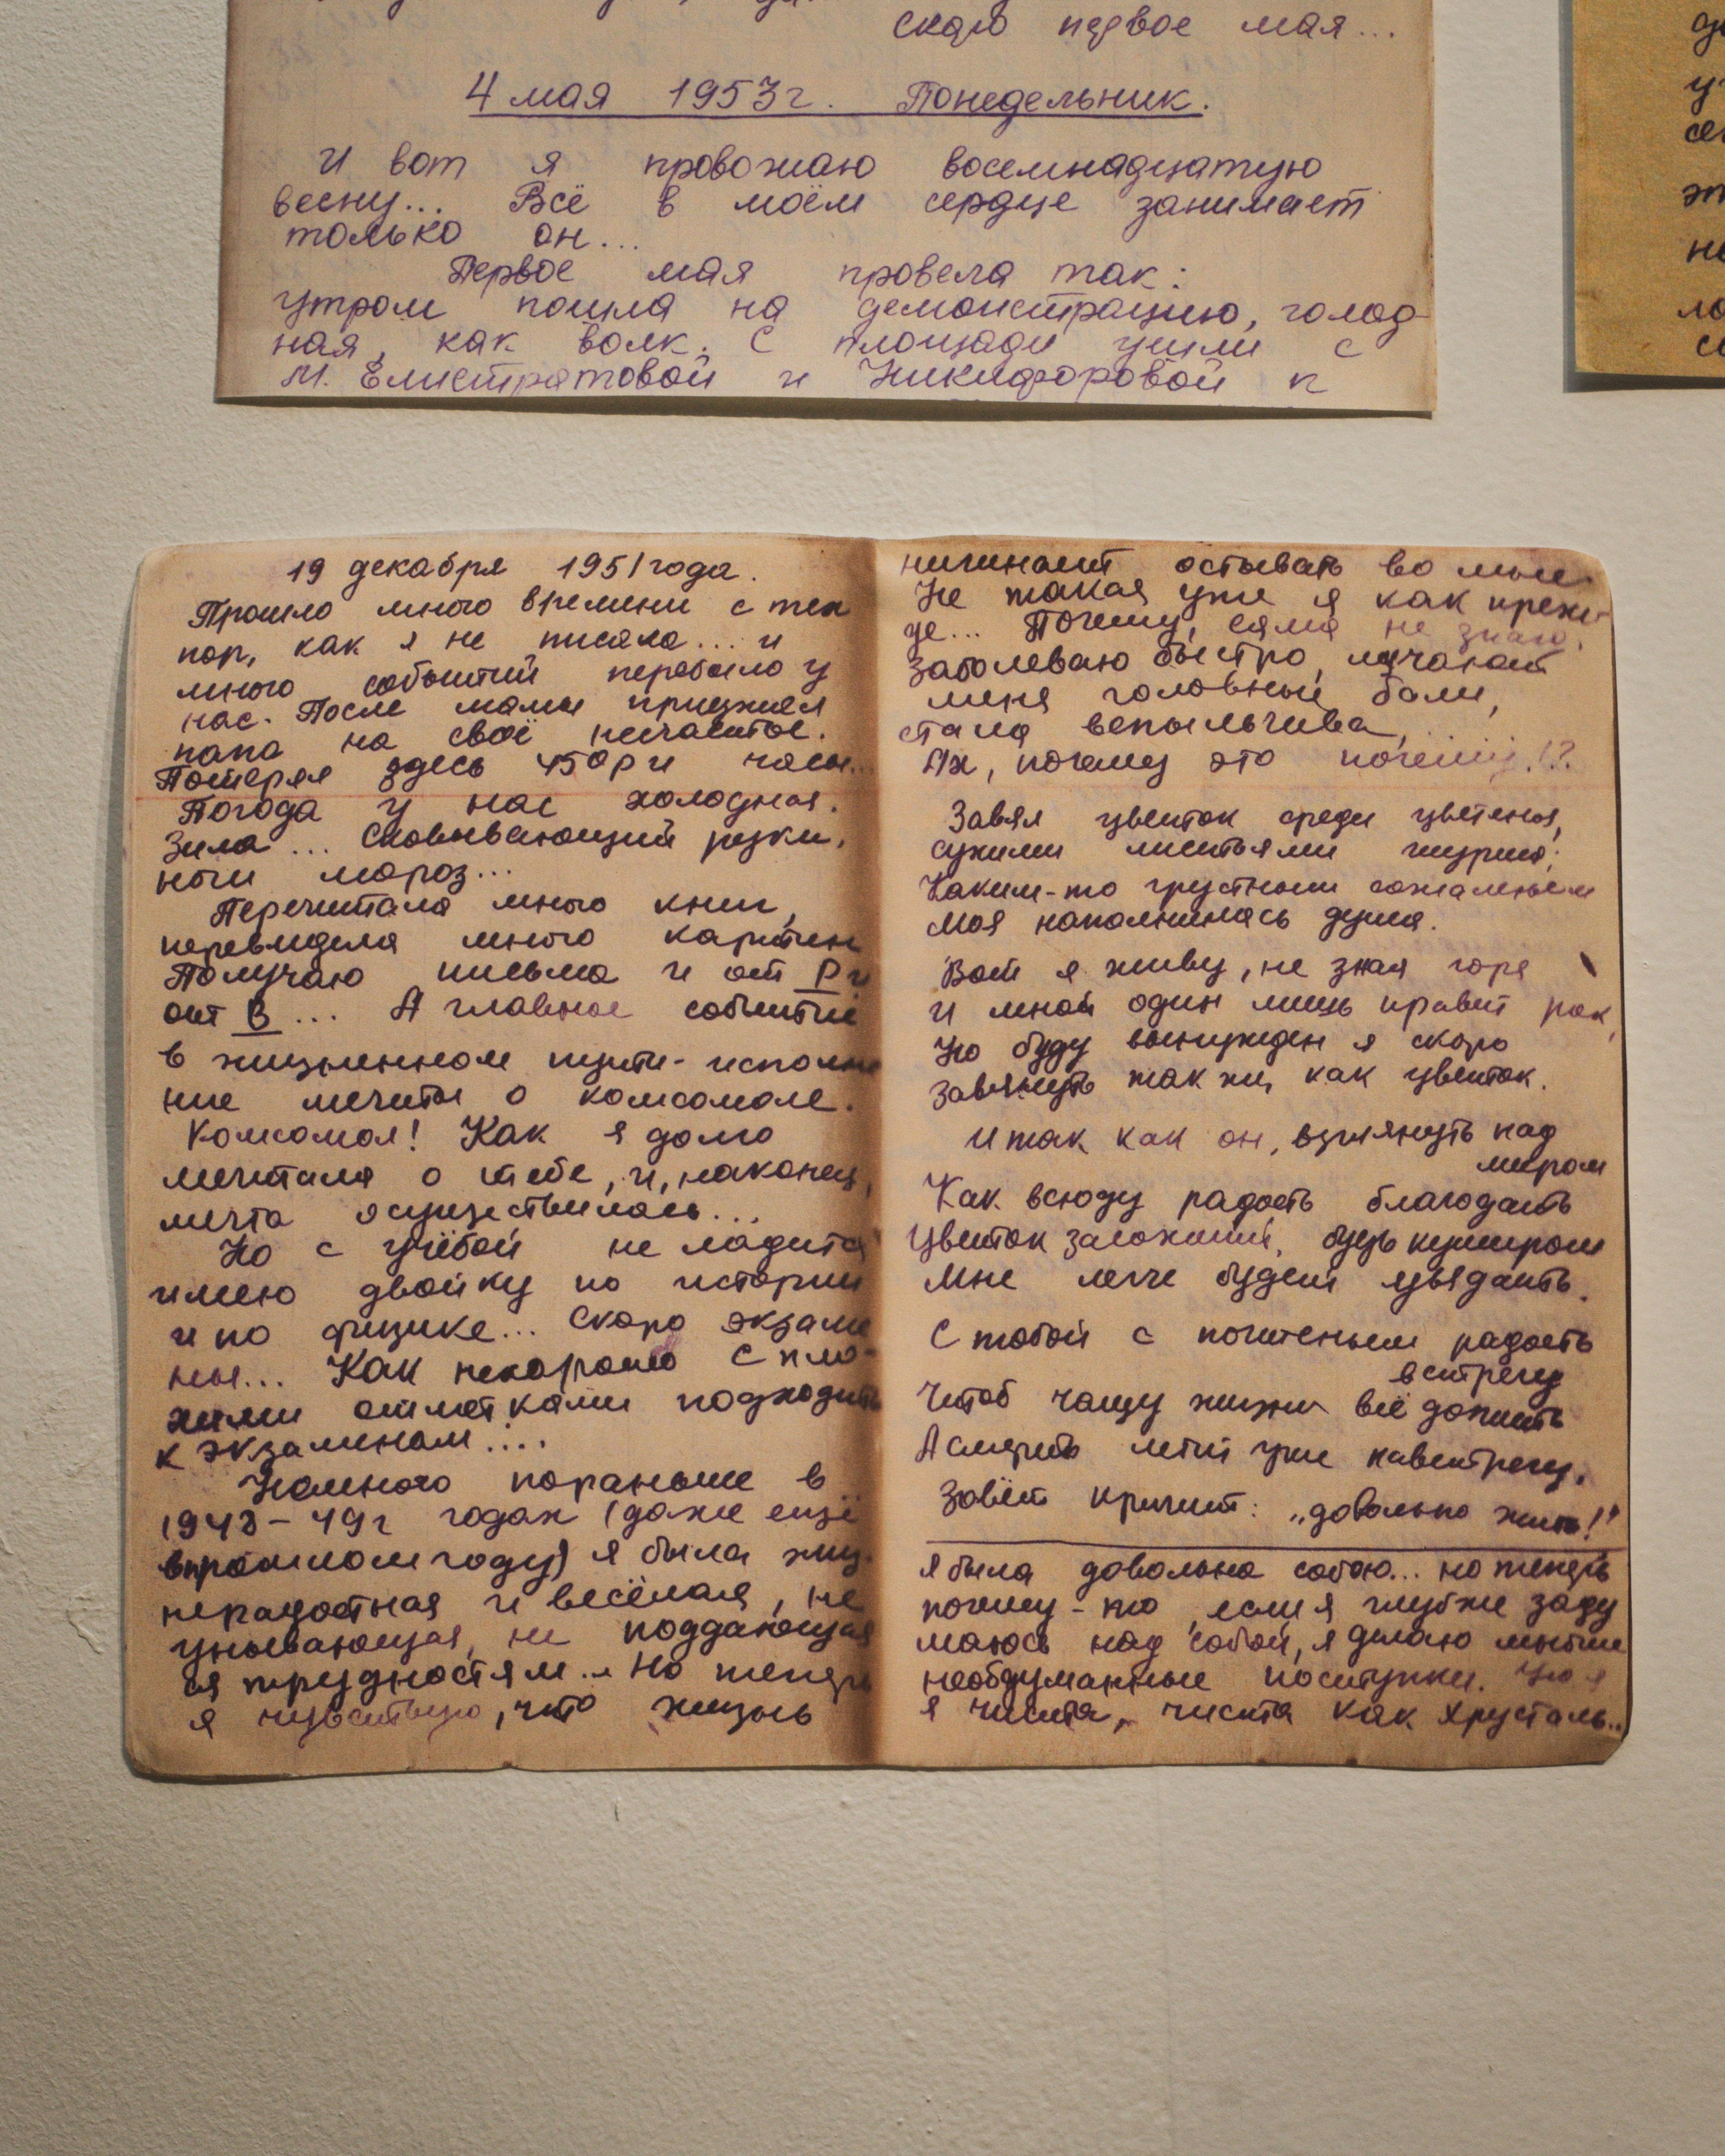 скоро первое мая...
4 мая 1953 г. Понедельник.
И вот я провожаю восемнадцатую
весну... Всё в моём сердце занимает
только он...
Первое мая провела так:
утром пошла на демонстрацию, голод-
ная, как волк. С площади ушли с
М. Елистратовой и Никифоровой к
19 декабря 1951 года.
Прошло много времени с тех
пор, как я не писала... и
много событий перебыло у
нас. После мамы приезжал
папа на своё несчастье.
Потерял здесь 450 р и часы...
Погода у нас холодная.
Зима... Сковывающий руки,
ноги мороз...
Перечитала много книг,
перевидела много картин
Получаю письма и от Р и
от В... А главное событие
в жизненном пути - исполне
ние мечты о комсомоле.
Комсомол! Как я долго
мечтала о тебе, и, наконец,
мечта осуществилась...
Но с учёбой не ладится
имею двойку по истории
и по физике... Скоро экзаме
ны... Как нехорошо с пло-
хими отметками подходить
к экзаменам....
Немного пораньше в
1948-49 г годах (даже ещё
в прошлом году) я была жиз-
нерадостная и весёлая, не
унывающая, не поддающая
ся трудностям... Но теперь
я чувствую, что жизнь
начинает остывать во мне.
Не такая уже я как преж-
де... Почему, сама не знаю.
Заболеваю быстро, мучают
меня головные боли,
стала вспыльчива,
Ах, почему это почему!?
Завял цветок среди цветенья,
сухими листьями шурша;
Каким-то грустным сожаленьем
Моя наполнилась душа.
Вот я живу, не зная горя
И мной один лишь правит рок,
Но буду вынужден я скоро
Завянуть так же, как цветок.
И так как он, взглянуть над
миром
Как всюду радость благодать
Цветок засохший, будь кумиром
Мне легче будет увядать.
С тобой с почтеньем радость
встречу
Чтоб чащу жизни всё дожить
А смерть летит уже навстречу.
Зовёт кричит: „довольно жить!"
Я была довольна собою... но теперь
почему-то, если я глубже заду
маюсь над собой, я делаю многие
необдуманные поступки. Но я
я чиста, чиста как хрусталь...